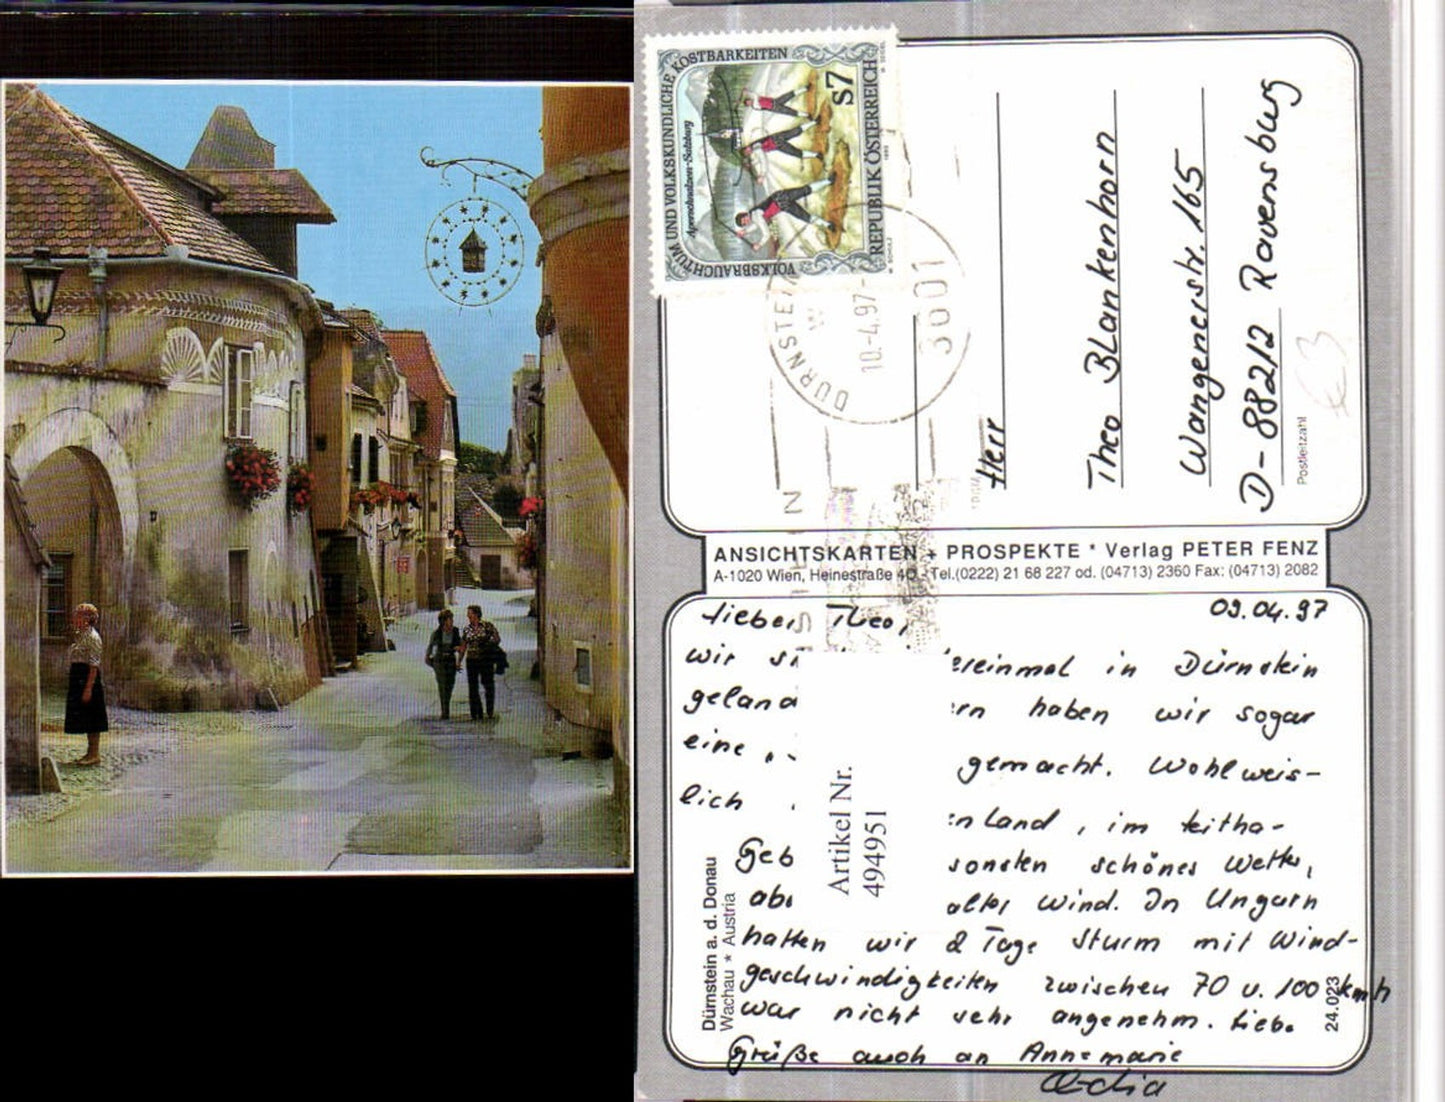 VOLKSBRAUCHTUM UND VOLKSKUNDLICHE KOSTBARKEITEN
Aperschnalzen-Salzburg
S7
REPUBLIK ÖSTERREICH
DÜRNSTEIN
10.-4.97-
3601
Herr
Theo Blankenhorn
Wangenerstr. 165
D-88212 Ravensburg
Postleitzahl
ANSICHTSKARTEN + PROSPEKTE * Verlag PETER FENZ
A-1020 Wien, Heinestraße 40 Tel.(0222) 21 68 227 od. (04713) 2360 Fax: (04713) 2082
09.04.97
Lieber Theo,
wir ereinmal in Dürnstein
geland ern haben wir sogar
eine gemacht. Wohlweis-
lich enland, im Leitha-
Geb sonsten schönes Wetter,
abe alter Wind. In Ungarn
hatten wir 2 Tage Sturm mit Wind-
geschwindigkeiten zwischen 70 u. 100 kmh
war nicht sehr angenehm. Liebe
Grüße auch an Annemarie
Artikel Nr.
494951
Dürnstein a. d. Donau
Wachau * Austria
24.023